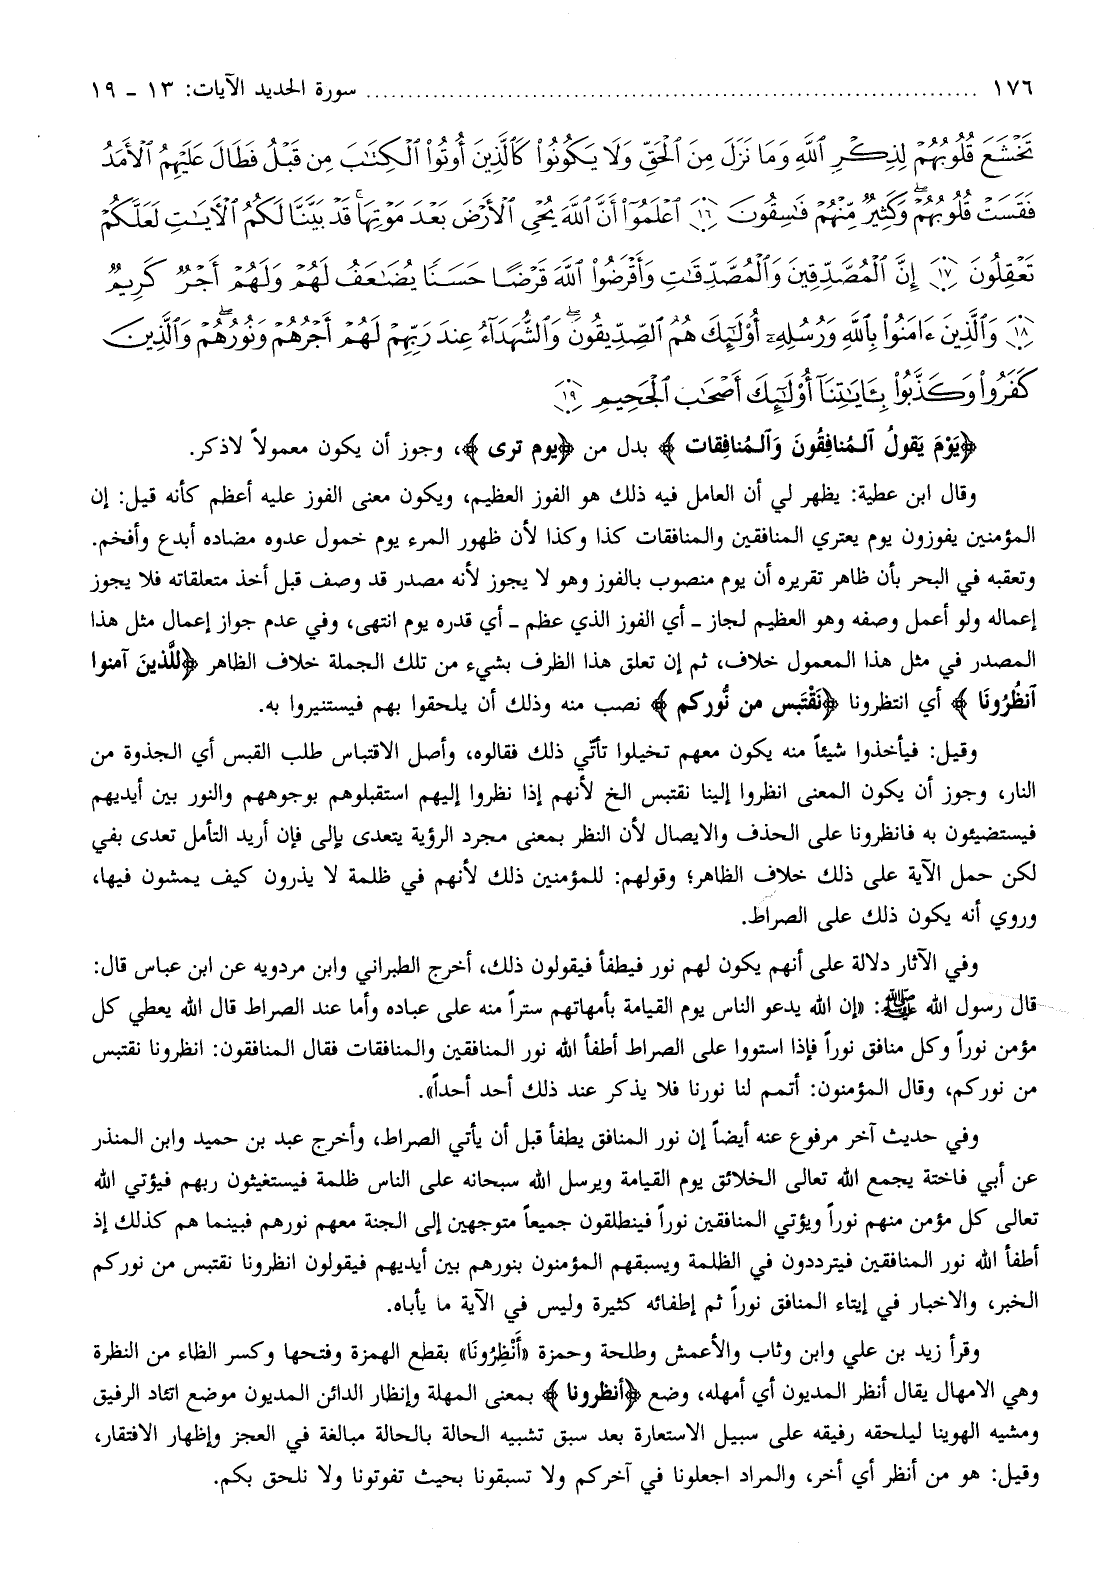 ١٧٦ ........................................................................ سورة الحديد الآيات: ١٣ - ١٩
تَخْشَعَ قُلُوبُهُمْ لِذِكْرِ ٱللَّهِ وَمَا نَزَلَ مِنَ ٱلْحَقِّ وَلَا يَكُونُوا۟ كَٱلَّذِينَ أُوتُوا۟ ٱلْكِتَٰبَ مِن قَبْلُ فَطَالَ عَلَيْهِمُ ٱلْأَمَدُ
فَقَسَتْ قُلُوبُهُمْ ۖ وَكَثِيرٌ مِّنْهُمْ فَٰسِقُونَ ﴿١٦﴾ ٱعْلَمُوٓا۟ أَنَّ ٱللَّهَ يُحْىِ ٱلْأَرْضَ بَعْدَ مَوْتِهَا ۚ قَدْ بَيَّنَّا لَكُمُ ٱلْءَايَٰتِ لَعَلَّكُمْ
تَعْقِلُونَ ﴿١٧﴾ إِنَّ ٱلْمُصَّدِّقِينَ وَٱلْمُصَّدِّقَٰتِ وَأَقْرَضُوا۟ ٱللَّهَ قَرْضًا حَسَنًا يُضَٰعَفُ لَهُمْ وَلَهُمْ أَجْرٌ كَرِيمٌ
﴿١٨﴾ وَٱلَّذِينَ ءَامَنُوا۟ بِٱللَّهِ وَرُسُلِهِۦٓ أُو۟لَٰٓئِكَ هُمُ ٱلصِّدِّيقُونَ ۖ وَٱلشُّهَدَآءُ عِندَ رَبِّهِمْ لَهُمْ أَجْرُهُمْ وَنُورُهُمْ ۖ وَٱلَّذِينَ
كَفَرُوا۟ وَكَذَّبُوا۟ بِـَٔايَٰتِنَآ أُو۟لَٰٓئِكَ أَصْحَٰبُ ٱلْجَحِيمِ ﴿١٩﴾
﴿يَوْمَ يَقُولُ ٱلمُنافِقُونَ وَٱلمُنافِقات﴾ بدل من ﴿يوم ترى﴾، وجوز أن يكون معمولاً لاذكر.
وقال ابن عطية: يظهر لي أن العامل فيه ذلك هو الفوز العظيم، ويكون معنى الفوز عليه أعظم كأنه قيل: إن
المؤمنين يفوزون يوم يعتري المنافقين والمنافقات كذا وكذا لأن ظهور المرء يوم خمول عدوه مضاده أبدع وأفخم.
وتعقبه في البحر بأن ظاهر تقريره أن يوم منصوب بالفوز وهو لا يجوز لأنه مصدر قد وصف قبل أخذ متعلقاته فلا يجوز
إعماله ولو أعمل وصفه وهو العظيم لجاز ـ أي الفوز الذي عظم ـ أي قدره يوم انتهى، وفي عدم جواز إعمال مثل هذا
المصدر في مثل هذا المعمول خلاف، ثم إن تعلق هذا الظرف بشيء من تلك الجملة خلاف الظاهر ﴿للَّذينَ آمنوا
ٱنظُرُونَا﴾ أي انتظرونا ﴿نَقْتَبِس من نُّوركم﴾ نصب منه وذلك أن يلحقوا بهم فيستنيروا به.
وقيل: فيأخذوا شيئاً منه يكون معهم تخيلوا تأتّي ذلك فقالوه، وأصل الاقتباس طلب القبس أي الجذوة من
النار، وجوز أن يكون المعنى انظروا إلينا نقتبس الخ لأنهم إذا نظروا إليهم استقبلوهم بوجوههم والنور بين أيديهم
فيستضيئون به فانظرونا على الحذف والايصال لأن النظر بمعنى مجرد الرؤية يتعدى بإلى فإن أريد التأمل تعدى بفي
لكن حمل الآية على ذلك خلاف الظاهر؛ وقولهم: للمؤمنين ذلك لأنهم في ظلمة لا يذرون كيف يمشون فيها،
وروي أنه يكون ذلك على الصراط.
وفي الآثار دلالة على أنهم يكون لهم نور فيطفأ فيقولون ذلك، أخرج الطبراني وابن مردويه عن ابن عباس قال:
قال رسول الله ﷺ: «إن الله يدعو الناس يوم القيامة بأمهاتهم ستراً منه على عباده وأما عند الصراط قال الله يعطي كل
مؤمن نوراً وكل منافق نوراً فإذا استووا على الصراط أطفأ الله نور المنافقين والمنافقات فقال المنافقون: انظرونا نقتبس
من نوركم، وقال المؤمنون: أتمم لنا نورنا فلا يذكر عند ذلك أحد أحداً».
وفي حديث آخر مرفوع عنه أيضاً إن نور المنافق يطفأ قبل أن يأتي الصراط، وأخرج عبد بن حميد وابن المنذر
عن أبي فاختة يجمع الله تعالى الخلائق يوم القيامة ويرسل الله سبحانه على الناس ظلمة فيستغيثون ربهم فيؤتي الله
تعالى كل مؤمن منهم نوراً ويؤتي المنافقين نوراً فينطلقون جميعاً متوجهين إلى الجنة معهم نورهم فبينما هم كذلك إذ
أطفأ الله نور المنافقين فيترددون في الظلمة ويسبقهم المؤمنون بنورهم بين أيديهم فيقولون انظرونا نقتبس من نوركم
الخبر، والاخبار في إيتاء المنافق نوراً ثم إطفائه كثيرة وليس في الآية ما يأباه.
وقرأ زيد بن علي وابن وثاب والأعمش وطلحة وحمزة «أَنْظِرُونَا» بقطع الهمزة وفتحها وكسر الظاء من النظرة
وهي الامهال يقال أنظر المديون أي أمهله، وضع ﴿أنظرونا﴾ بمعنى المهلة وإنظار الدائن المديون موضع اتئاد الرفيق
ومشيه الهوينا ليلحقه رفيقه على سبيل الاستعارة بعد سبق تشبيه الحالة بالحالة مبالغة في العجز وإظهار الافتقار،
وقيل: هو من أنظر أي أخر، والمراد اجعلونا في آخركم ولا تسبقونا بحيث تفوتونا ولا نلحق بكم.